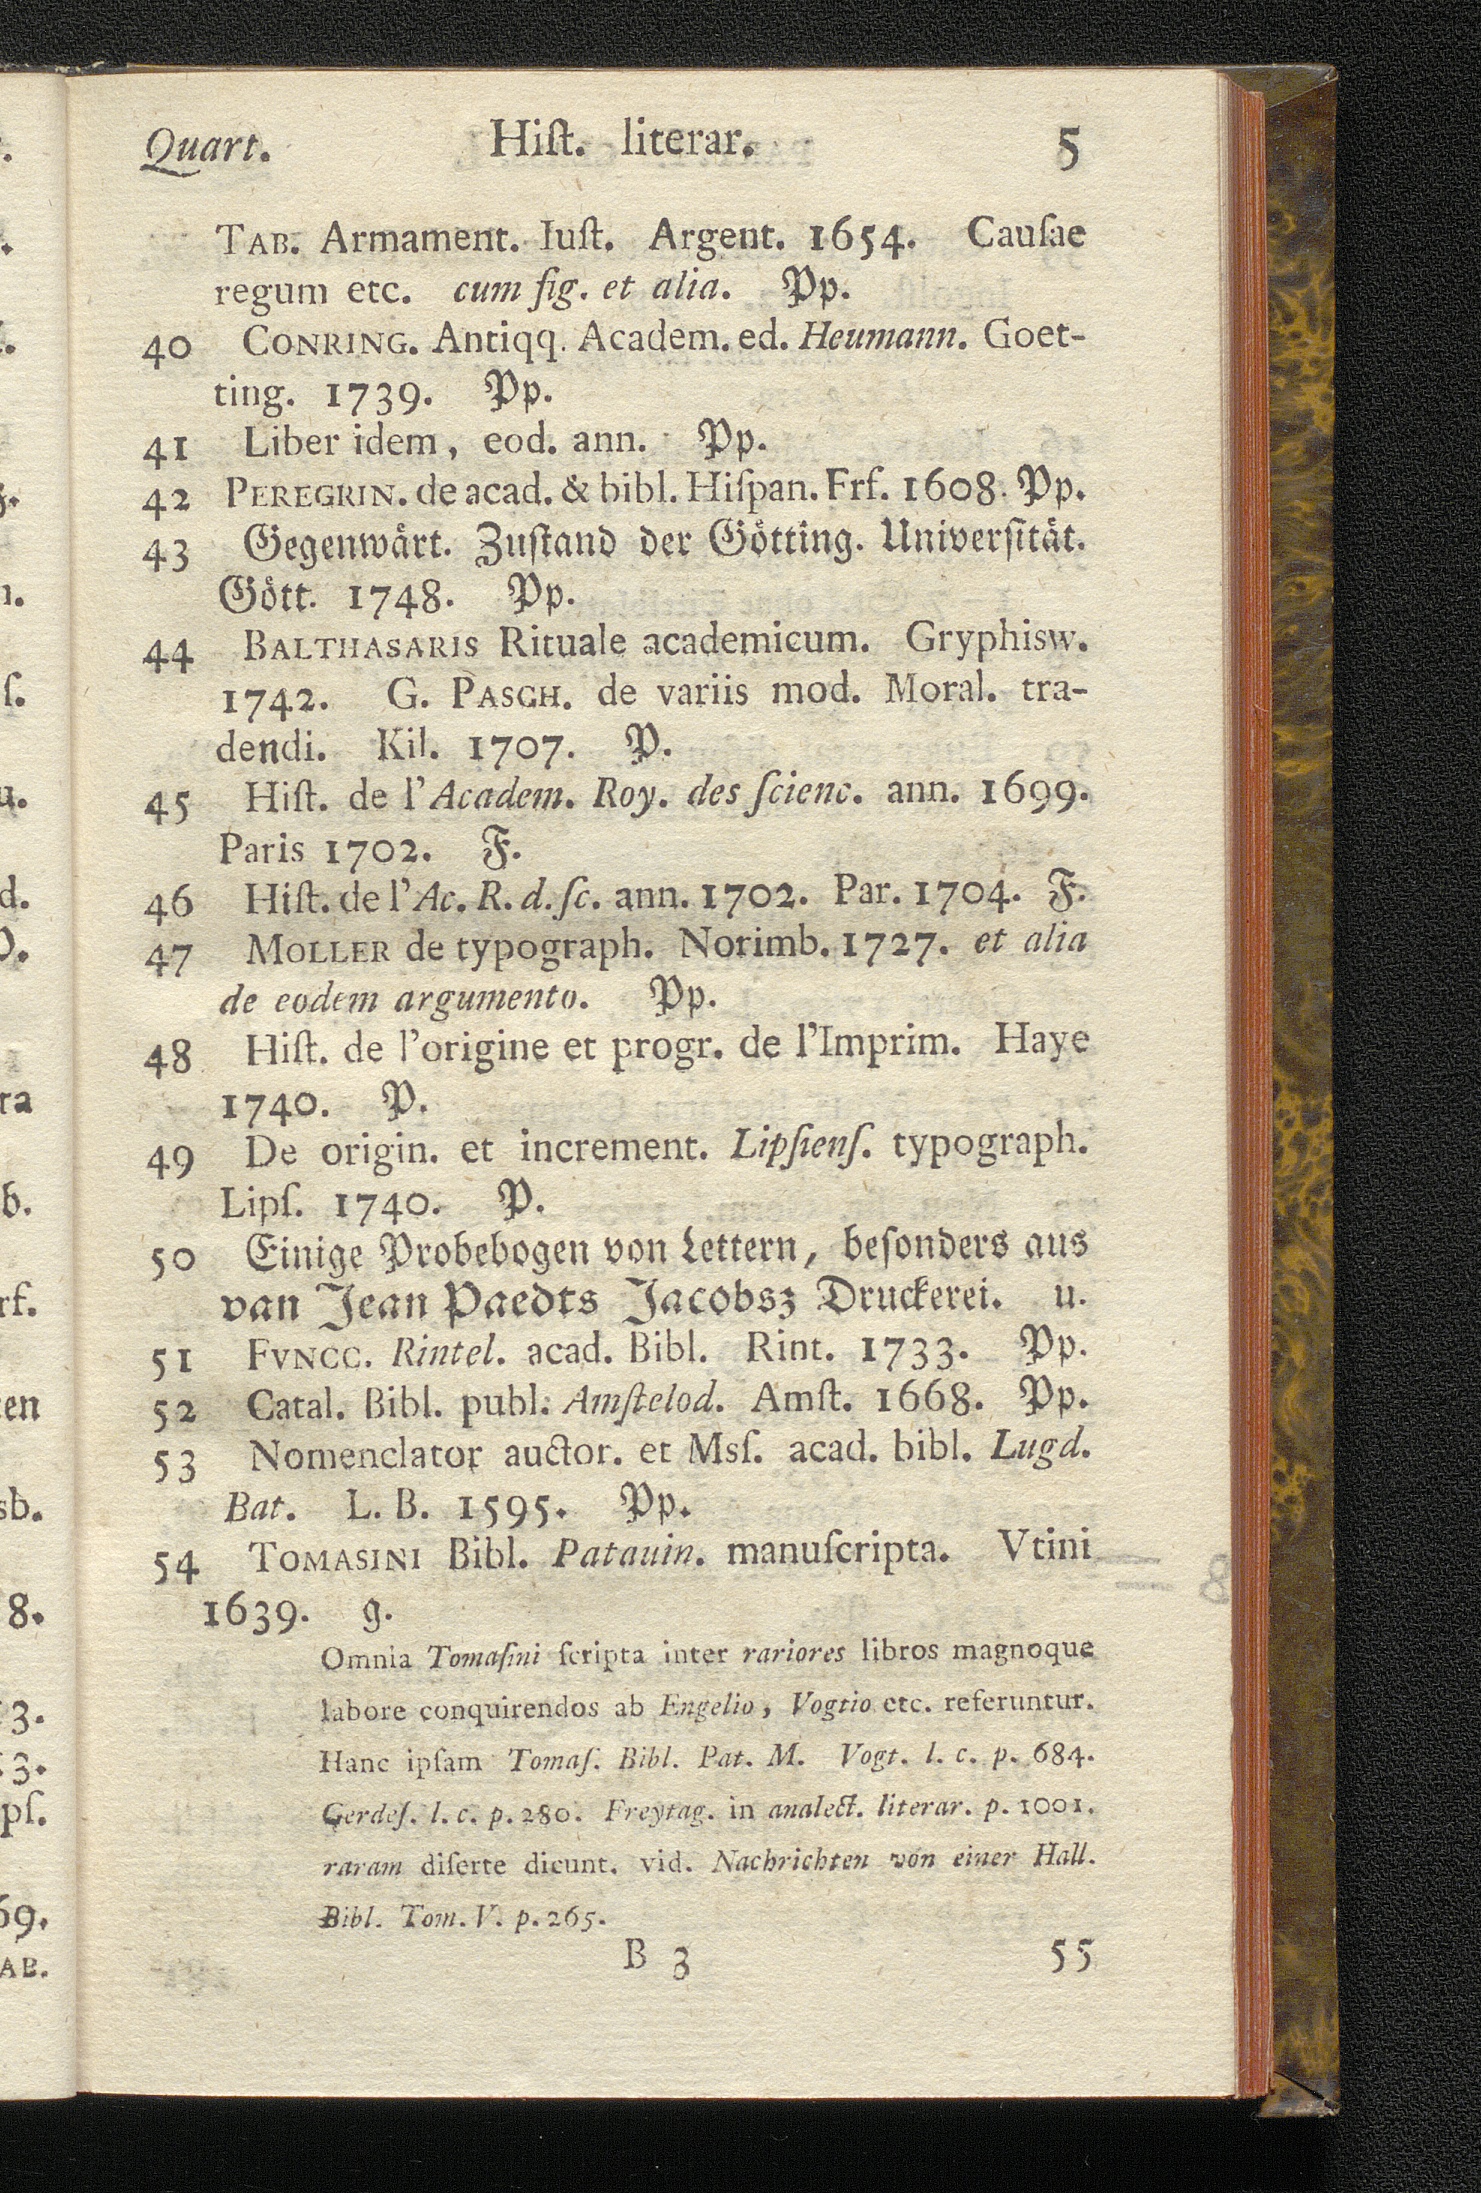 Quart. Hiſt. literar. 5
TAB. Armament. Iuſt. Argent. 1654. Cauſae
regum etc. cum fig. et alia. Pp.
40 CONRING. Antiqq. Academ. ed. Heumann. Goet-
ting. 1739. Pp.
41 Liber idem, eod. ann. Pp.
42 PEREGRIN. de acad. & bibl. Hiſpan. Frf. 1608. Pp.
43 Gegenwårt. Zuſtand der Götting. Univerſität.
Gött. 1748. Pp.
44 BALTHASARIS Rituale academicum. Gryphisw.
1742. G. PASCH. de variis mod. Moral. tra-
dendi. Kil. 1707. P.
45 Hiſt. de l'Academ. Roy. des ſcienc. ann. 1699.
Paris 1702. F.
46 Hiſt. de l'Ac. R. d. ſc. ann. 1702. Par. 1704. F.
47 MOLLER de typograph. Norimb. 1727. et alia
de eodem argumento. Pp.
48 Hiſt. de l'origine et progr. de l'Imprim. Haye
1740. P.
49 De origin. et increment. Lipſienſ. typograph.
Lipſ. 1740. P.
50 Einige Probebogen von Lettern, beſonders aus
van Jean Paedts Jacobsz Druckerei. u.
51 FVNCC. Rintel. acad. Bibl. Rint. 1733. Pp.
52 Catal. Bibl. publ. Amſtelod. Amſt. 1668. Pp.
53 Nomenclator auctor. et Msſ. acad. bibl. Lugd.
Bat. L. B. 1595. Pp.
54 TOMASINI Bibl. Patauin. manuſcripta. Vtini
1639. g.
Omnia Tomaſini ſcripta inter rariores libros magnoque
labore conquirendos ab Engelio, Vogtio etc. referuntur.
Hanc ipſam Tomaſ. Bibl. Pat. M. Vogt. l. c. p. 684.
Gerdeſ. l. c. p. 280. Freytag. in analect. literar. p. 1001.
raram diſerte dicunt. vid. Nachrichten von einer Hall.
Bibl. Tom. V. p. 265.
B 3 55